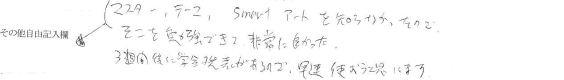 マスター,テーマ, Smart アートを知らなかったので
その他自由記入欄
そこを勉強できて非常に良かった。
3週間後に学会発表があるので,早速使おうと思います